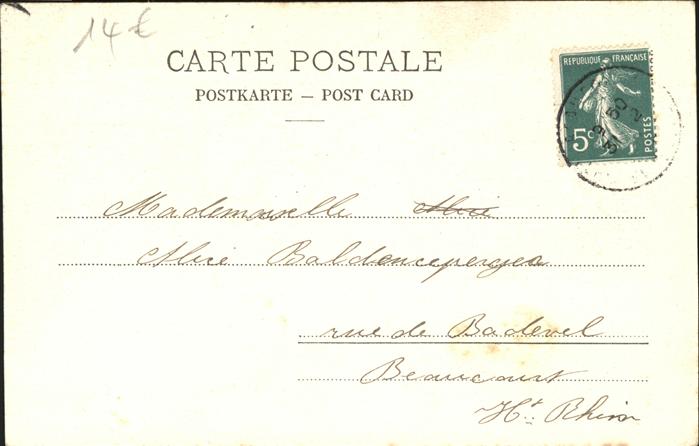 14 €
CARTE POSTALE
POSTKARTE — POST CARD
REPUBLIQUE FRANÇAISE
5c
POSTES
Mademoiselle Alice
Alice Baldenceperger
rue de Badevel
Beaucourt
Ht Rhin